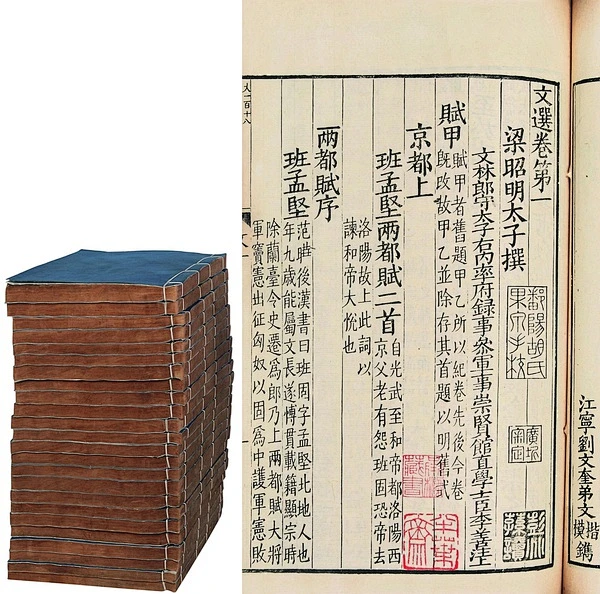 江寧劉文奎弟文楷模鐫
文選卷第一
梁昭明太子撰
鄱陽胡氏
文林郎守太子右内率府録事叅軍事崇賢館直學士臣李善注
廣圻審定
賦甲
賦甲者舊題甲乙所以紀卷先後今卷
既改故甲乙並除存其首題以明舊式
京都上
班孟堅兩都賦二首
自光武至和帝都洛陽西
京父老有怨班固恐帝去
洛陽故上此詞以
諫和帝大恱也
兩都賦序
班孟堅
范曄後漢書曰班固字孟堅北地人也
年九歲能屬文長遂博貫載籍顯宗時
除蘭臺令史遷爲郎乃上兩都賦大將
軍竇憲出征匈奴以固爲中護軍憲敗
一百十八